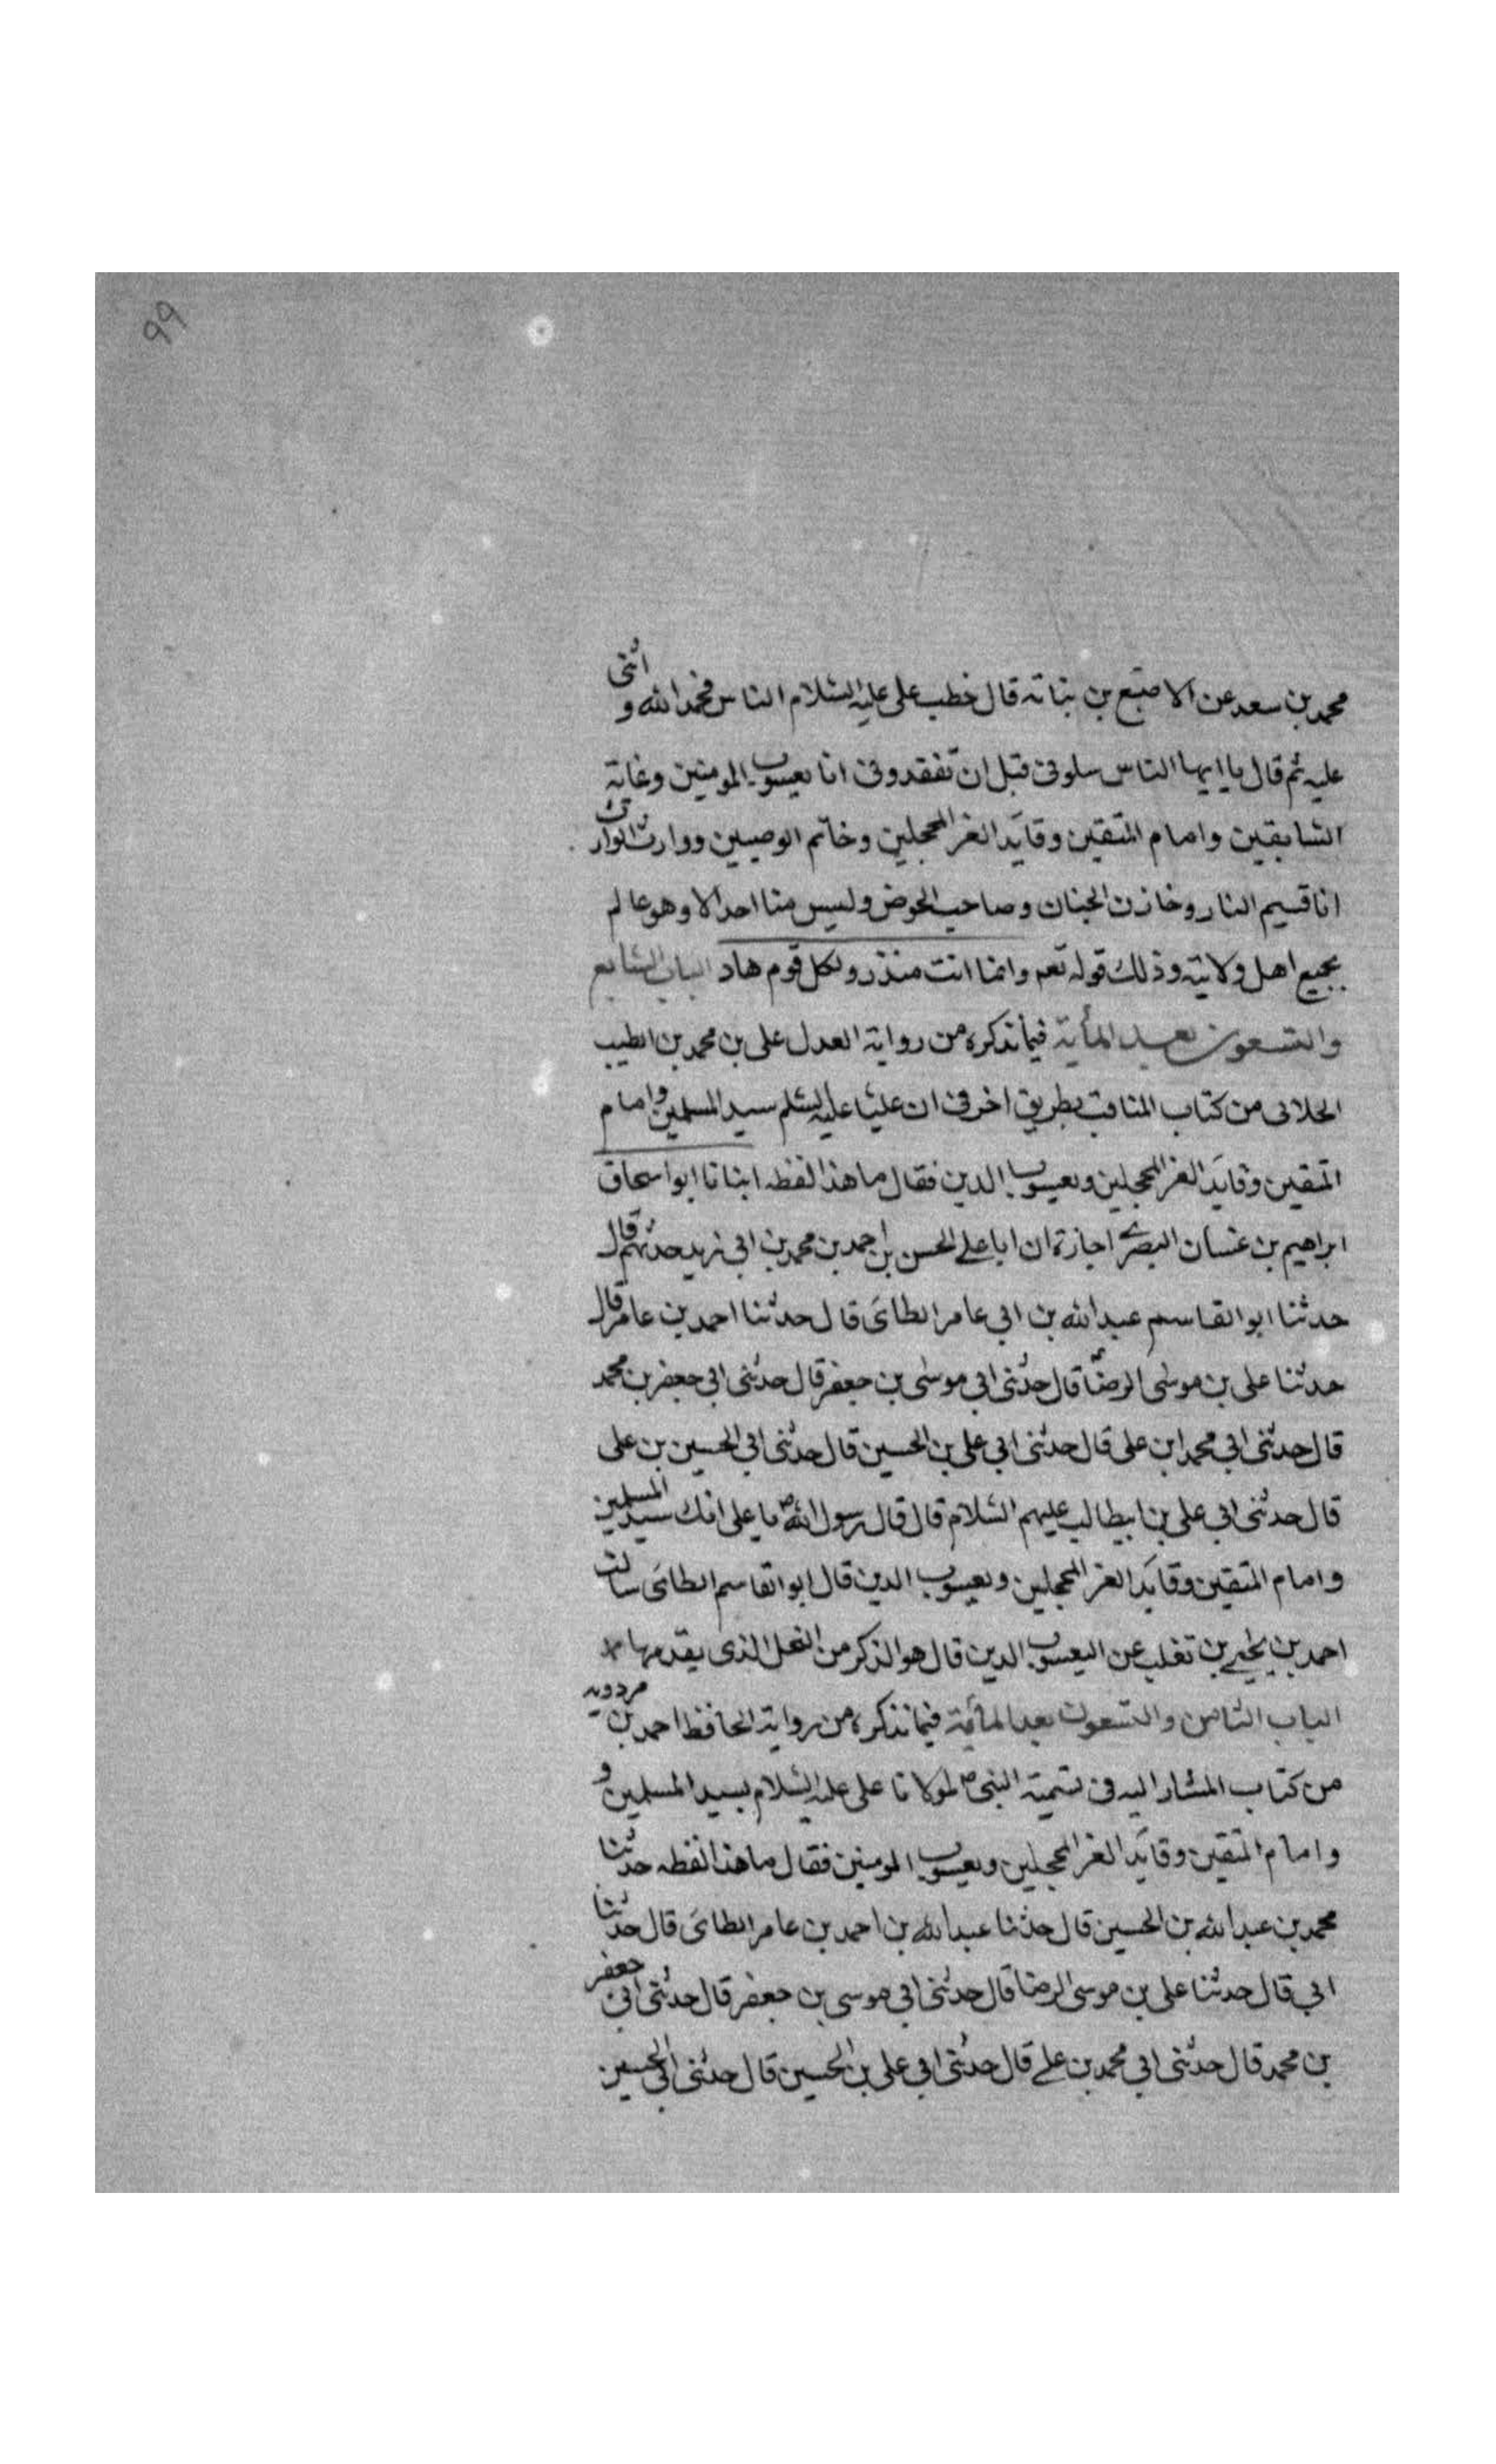 ٩٩
محمد بن سعد عن الاصبع بن بناته قال خطب على عليه السلام الناس فحمد الله و اثنى
عليه ثم قال يا ايها الناس سلونى قبل ان تفقدونى انا يعسوب المومنين وغاية
السابقين وامام المتقين وقايد الغر المحجلين وخاتم الوصيين ووارث
انا قسيم النار وخازن الجنان وصاحب الحوض وليس منا احد الا وهو عالم
بجميع اهل ولايته وذلك قوله تعم وانما انت منذر ولكل قوم هاد الباب السابع
والتسعون بعد المأية فيما نذكره من رواية العدل على بن محمد بن الطيب
الحلابى من كتاب المناقب بطريق اخر فى ان عليا عليه السلم سيد المسلمين وامام
المتقين وقايد الغر المحجلين ويعسوب الدين فقال ما هذا لفظه ابنانا ابو اسحاق
ابراهيم بن غسان البصرى اجازة ان ابا على الحسن بن احمد بن محمد بن ابى زيد حدثهم قال
حدثنا ابو القاسم عبد الله بن ابى عامر الطائى قال حدثنا احمد بن عامر قال
حدثنا على بن موسى الرضا ع قال حدثنى ابى موسى بن جعفر قال حدثنى ابى جعفر بن محمد
قال حدثنى ابى محمد ابن على قال حدثنى ابى على بن الحسين قال حدثنى ابى الحسين بن على
قال حدثنى ابى على بن ابيطالب عليهم السلام قال قال رسول الله ص يا على انك سيد المسلمين
وامام المتقين وقايد الغر المحجلين ويعسوب الدين قال ابو القاسم الطائى سالت
احمد بن يحيى بن تغلب عن اليعسوب الدين قال هو الذكر من النحل الذى يقدمها
الباب الثامن والتسعون بعد المأية فيما نذكره من رواية الحافظ احمد بن مردويه
من كتاب المشار اليه فى تسمية النبى ص لمولانا على عليه السلام بسيد المسلمين و
وامام المتقين وقايد الغر المحجلين ويعسوب المومنين فقال ما هذا لفظه حدثنا
محمد بن عبد الله بن الحسين قال حدثنا عبد الله بن احمد بن عامر الطائى قال حدثنا
ابى قال حدثنا على بن موسى الرضا قال حدثنى ابى موسى بن جعفر قال حدثنى ابى جعفر
بن محمد قال حدثنى ابى محمد بن على قال حدثنى ابى على بن الحسين قال حدثنى ابى الحسين